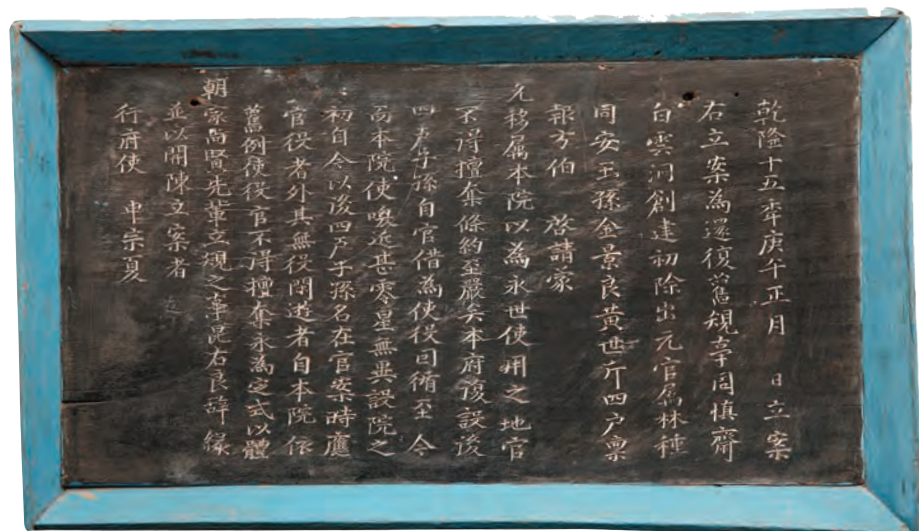 乾隆十五年庚午正月 日立案
右立案為遵復舊規事同慎齋
白雲洞創建初除出元官屬林種
同安玉孫金景良黃世斤四戶稟
報方伯 啓請蒙
允移屬本院以為永世使用之地官
不得擅奪條約至嚴矣本府復設後
四戶子孫自官借為使役因循至 今
而本院使喚近甚零星無異設院之
初自今以後四戶子孫名在官案時應
官役者外其無役閑遊者自本院依
舊例使役官不得擅奪永為定式以體
朝家尚賢先輩立規之革昆右良辭緣
並以開陳立案者
行府使 申宗夏